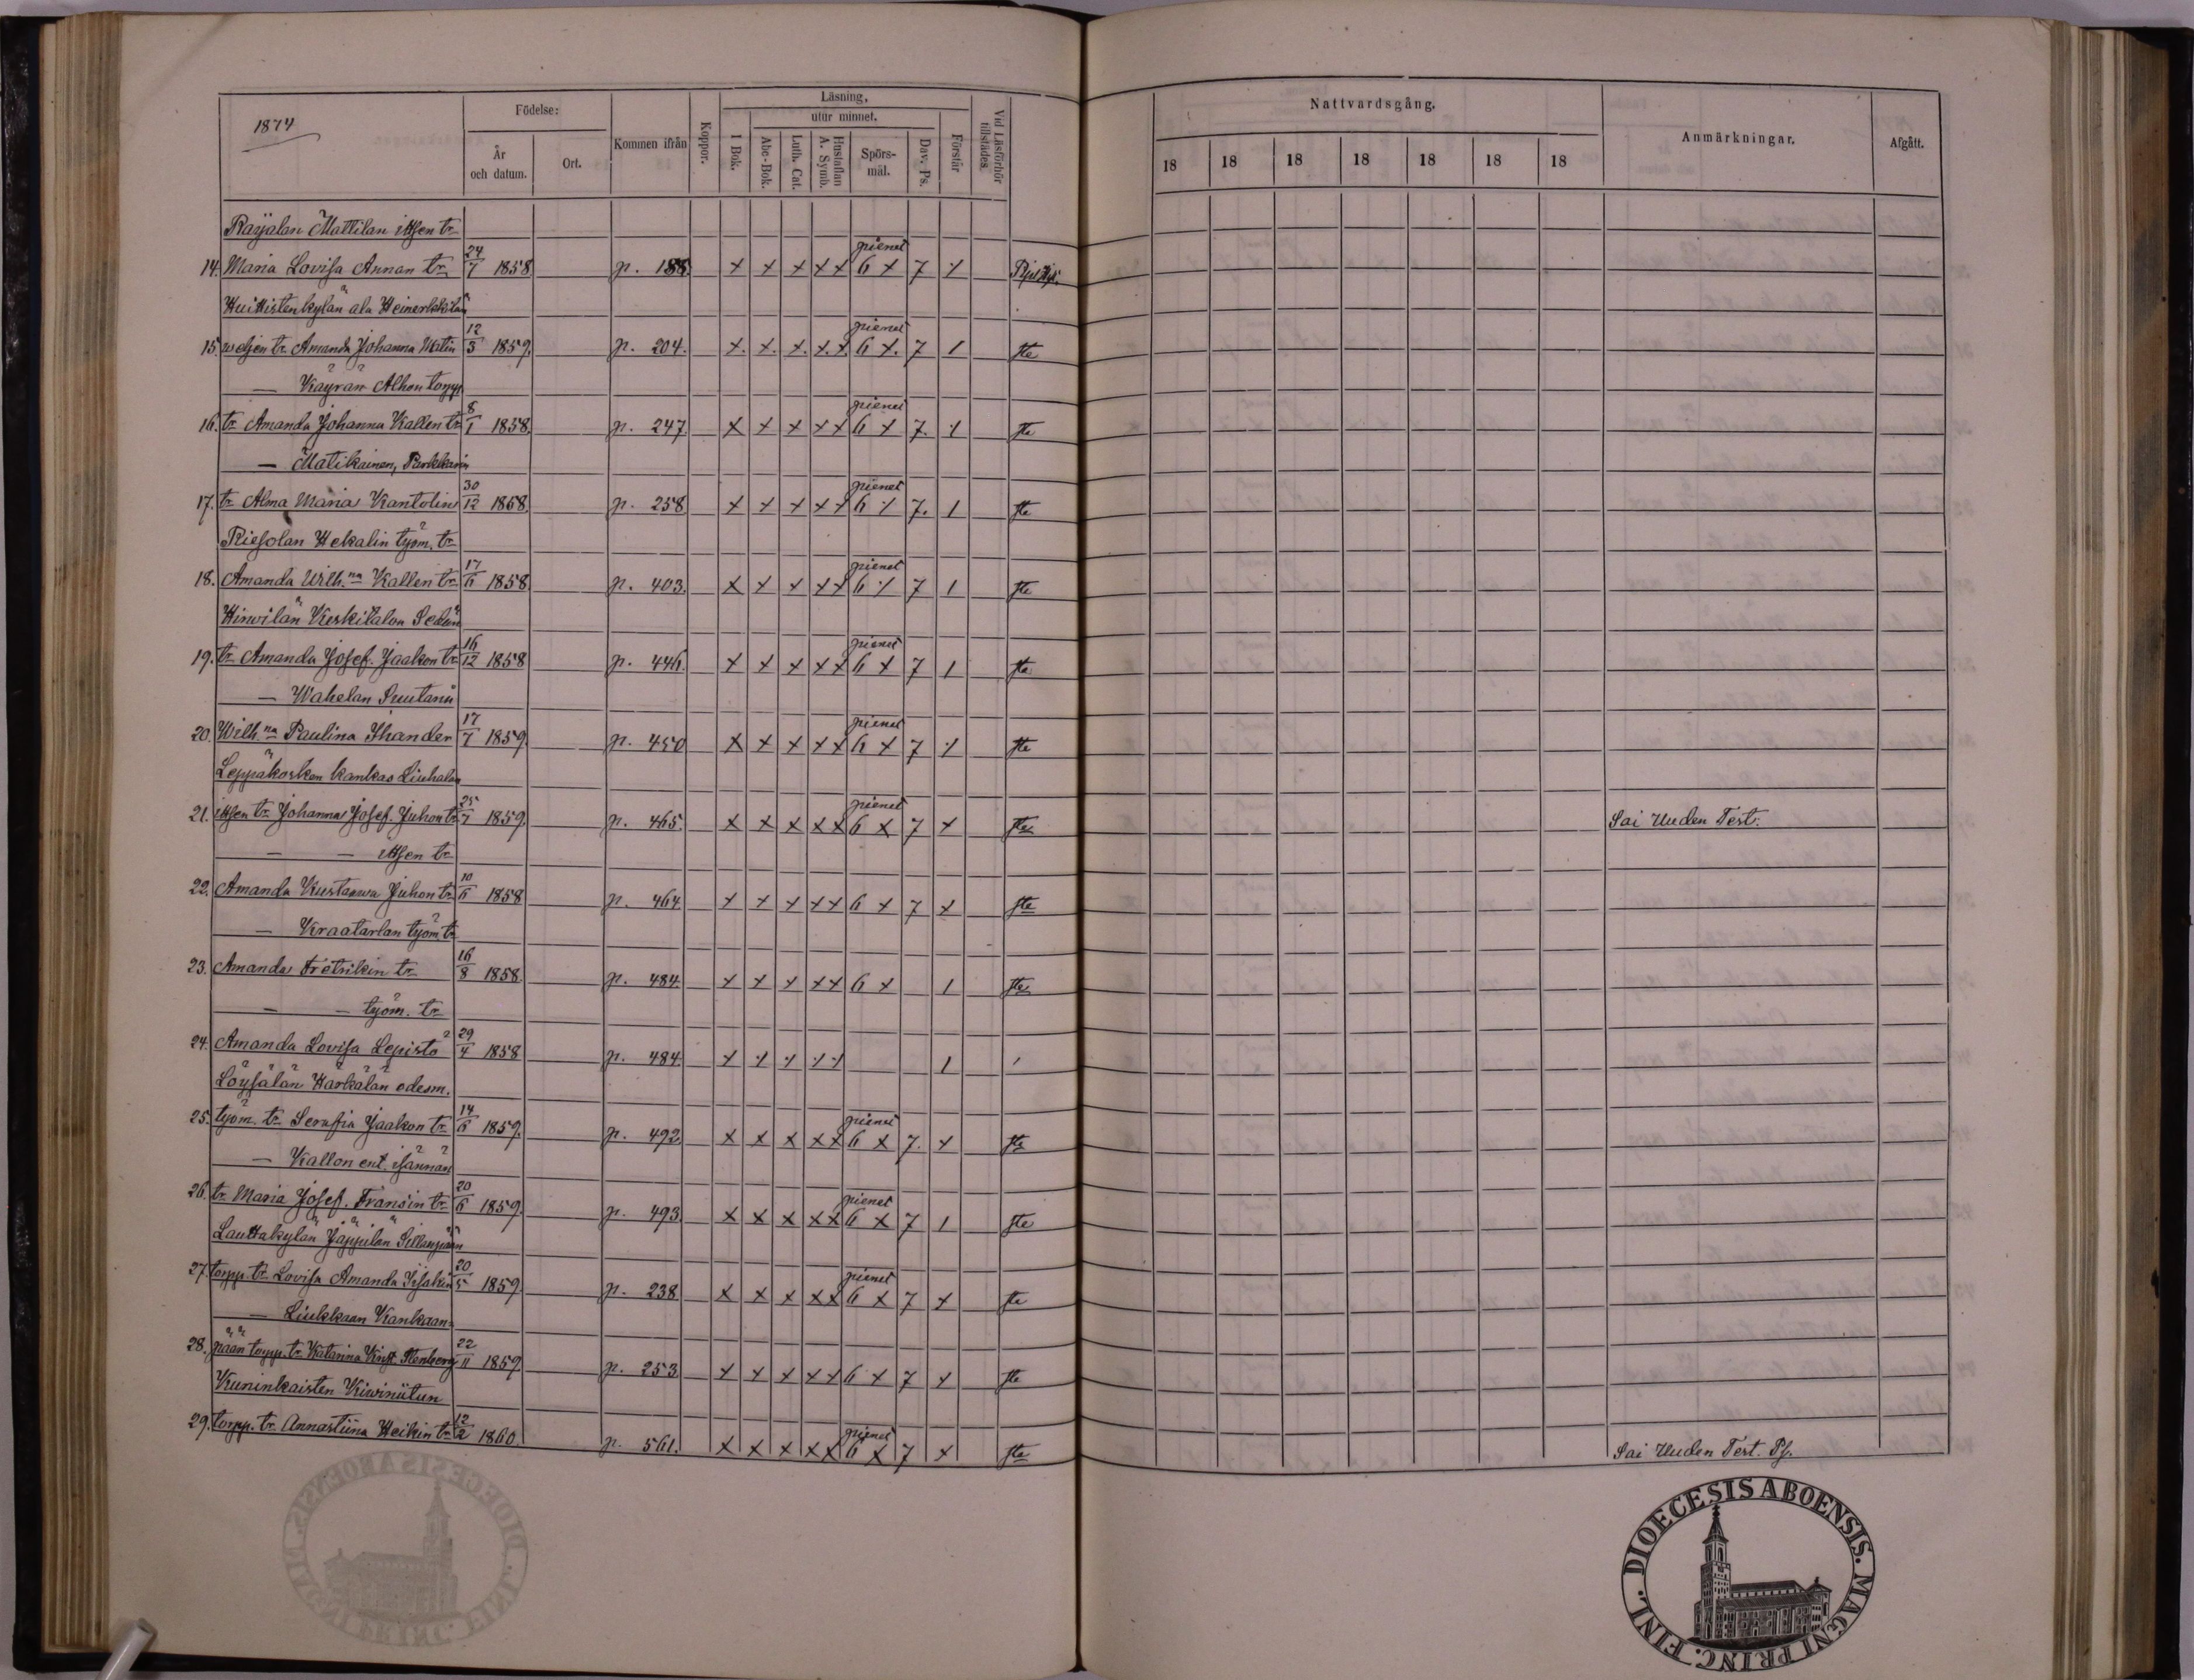 1874
Födelse:
År
och datum.
Ort.
Kommen ifrån
Koppor.
Läsning,
utur minnet.
I Bok.
Abc-Bok.
Luth. Cat.
Hustaflan
A. Symb.
Spörs-
mål.
Dav. Ps.
Förstår
Vid Läsförhör
tillstädes.
Nattvardsgång.
18 18 18 18 18 18 18
Anmärkningar.
Afgått.
Raijalan Mattilan itsen tr
14. Maria Lovisa Annan tr. 24/7 1858 p. 188. x x x x x pienet 6 x 7 x
Huittistenkylän ala Heinerkkilän
15. weljen tr. Amanda Johanna Matin 12/3 1859. p. 204. x. x. x. x. x. pienet 6 x. 7 1 ste
— Käyrän Alhon torpp
16. tr Amanda Johanna Kallen tr 8/1 1858. p. 247. x x x x x pienet 6 x 7. x ste
— Matikainen,
17. tr Alma Maria Kantolin 30/12 1858. p. 258 x x x x x pienet 6 x 7. 1 ste
Riesolan Hekalin työm. tr
18. Amanda Wilh.na Kallen tr 17/6 1858 p. 403. x x x x x pienet 6 x 7 1 ste
Hirwilän Keskitalon
19. tr Amanda Josef. Jaakon tr 16/12 1858 p. 446. x x x x x pienet 6 x 7 1 ste
— Wahelan Suutarin
20. Wilh.na Paulina Ihander 17/7 1859. p. 450 x x x x x pienet 6 x 7 x ste
Leppäkosken kankas Liuhalan
21. itsen tr. Johanna Josef. Juhon tr 25/7 1859. p. 465. x x x x x pienet 6 x 7 x ste Sai Uuden Test.
— — itsen tr
22. Amanda Kustaawa Juhon tr 10/6 1858 p. 464. x x x x x 6 x 7 x ste
— Kraatarlan työm tr
23. Amanda Fretrikin tr 16/8 1858. p. 484. x x x x x 6 x 1 ste
— — työm. tr
24. Amanda Lovisa Lepistö 29/4 1858 p. 484. x x x x x 1
Löysälän Härkälän edesm.
25. työm. tr. Serafia Jaakon tr. 14/6 1859. p. 492 x x x x x pienet 6 x 7. x ste
— Kallon ent. isännän
26. tr. Maria Josef. Fransin tr 20/6 1859. p. 493. x x x x x pienet 6 x 7 1 ste
Lauttakylän Jäppilän Sillanpään
27. torpp. tr. Lovisa Amanda Iisakin 20/5 1859. p. 238 x x x x x pienet 6 x 7 x ste
— Liukkaan Kankaan-
28. pään torpp. tr. Katarina Krist. Stenberg 22/11 1859. p. 253. x x x x x 6 x 7 x ste
Kuninkaisten Kiwiniitun
29. torpp. tr Annastiina Heikin tr. 12/2 1860. p. 561. x x x x x pienet 6 x 7 x ste Sai Uuden Test. Ps.
DIOECESIS ABOENSIS. MAGNI PRINC. FINL.